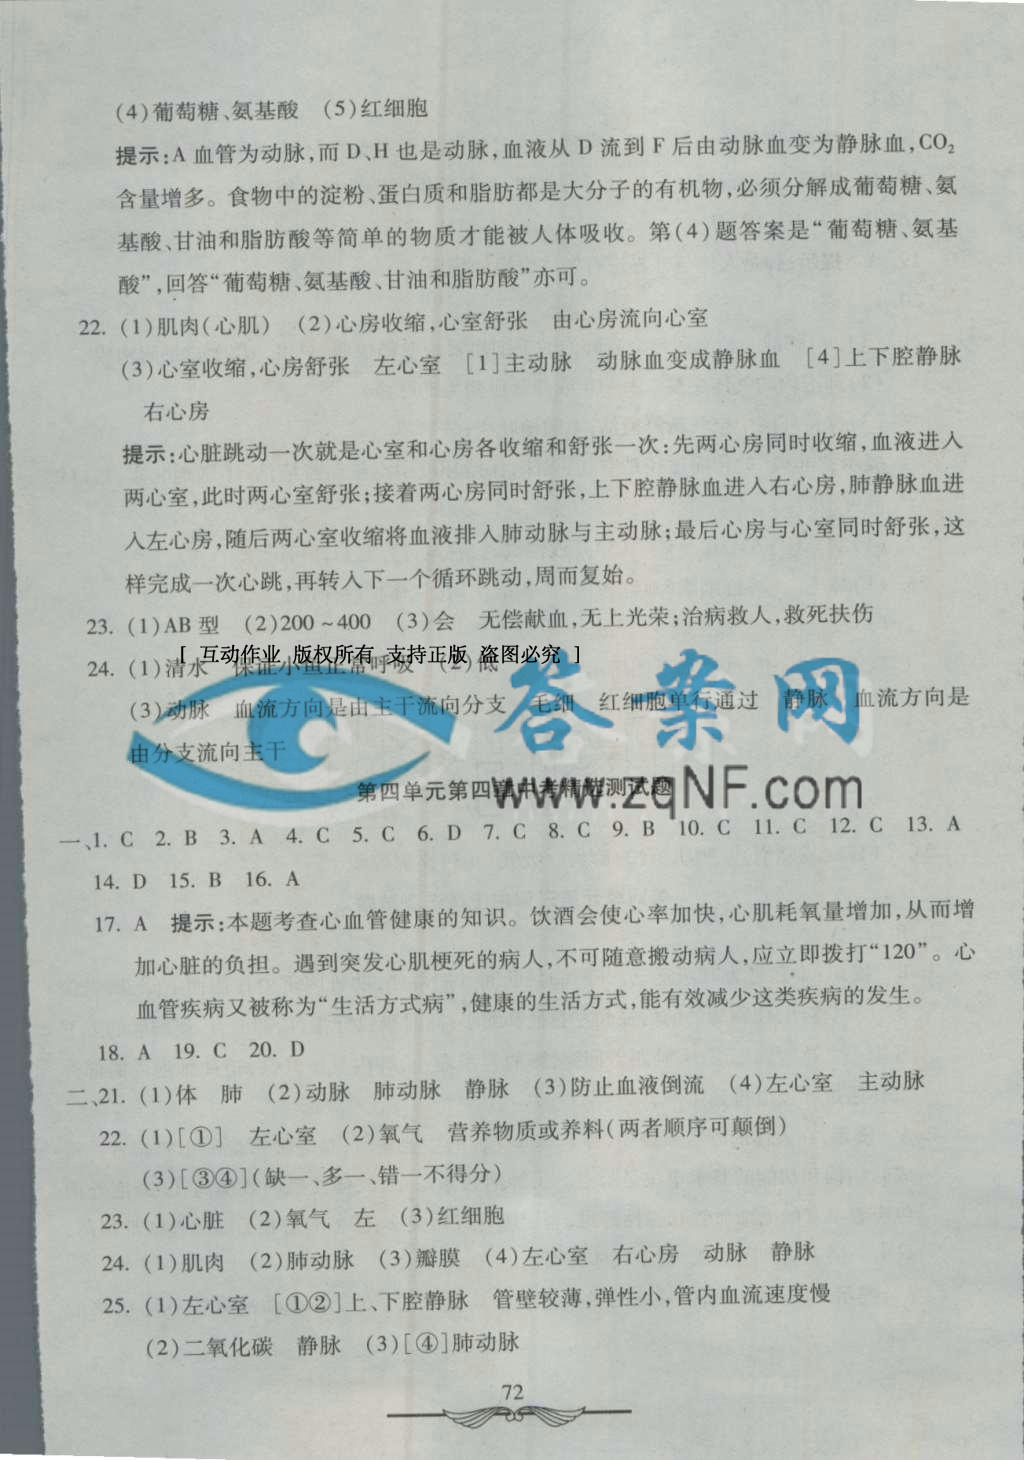 (4)葡萄糖、氨基酸 (5)红细胞
提示:A 血管为动脉,而 D、H 也是动脉,血液从 D 流到 F 后由动脉血变为静脉血,CO₂
含量增多。食物中的淀粉、蛋白质和脂肪都是大分子的有机物,必须分解成葡萄糖、氨
基酸、甘油和脂肪酸等简单的物质才能被人体吸收。第(4)题答案是“葡萄糖、氨基
酸”,回答“葡萄糖、氨基酸、甘油和脂肪酸”亦可。
22. (1)肌肉(心肌) (2)心房收缩,心室舒张 由心房流向心室
(3)心室收缩,心房舒张 左心室 [1]主动脉 动脉血变成静脉血 [4]上下腔静脉
右心房
提示:心脏跳动一次就是心室和心房各收缩和舒张一次:先两心房同时收缩,血液进入
两心室,此时两心室舒张;接着两心房同时舒张,上下腔静脉血进入右心房,肺静脉血进
入左心房,随后两心室收缩将血液排入肺动脉与主动脉;最后心房与心室同时舒张,这
样完成一次心跳,再转入下一个循环跳动,周而复始。
23. (1)AB 型 (2)200～400 (3)会 无偿献血,无上光荣;治病救人,救死扶伤
[ 互动作业 版权所有 支持正版 盗图必究 ]
24. (1)清水 保证小鱼正常呼吸 (2)低
(3)动脉 血流方向是由主干流向分支 毛细 红细胞单行通过 静脉 血流方向是
由分支流向主干
答案网
www.zqNF.com
第四单元第四章中考精选测试题
一、1. C 2. B 3. A 4. C 5. C 6. D 7. C 8. C 9. B 10. C 11. C 12. C 13. A
14. D 15. B 16. A
17. A 提示:本题考查心血管健康的知识。饮酒会使心率加快,心肌耗氧量增加,从而增
加心脏的负担。遇到突发心肌梗死的病人,不可随意搬动病人,应立即拨打“120”。心
血管疾病又被称为“生活方式病”,健康的生活方式,能有效减少这类疾病的发生。
18. A 19. C 20. D
二、21. (1)体 肺 (2)动脉 肺动脉 静脉 (3)防止血液倒流 (4)左心室 主动脉
22. (1)[①] 左心室 (2)氧气 营养物质或养料(两者顺序可颠倒)
(3)[③④](缺一、多一、错一不得分)
23. (1)心脏 (2)氧气 左 (3)红细胞
24. (1)肌肉 (2)肺动脉 (3)瓣膜 (4)左心室 右心房 动脉 静脉
25. (1)左心室 [①②]上、下腔静脉 管壁较薄,弹性小,管内血流速度慢
(2)二氧化碳 静脉 (3)[④]肺动脉
72